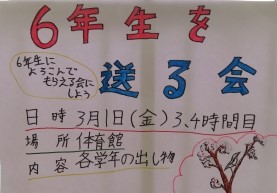 6年生を
送る会
6年生に
よろこんで
もらえる会に
しよう
日時 3月1日(金) 3、4時間目
場所 体育館
内容 各学年の出し物